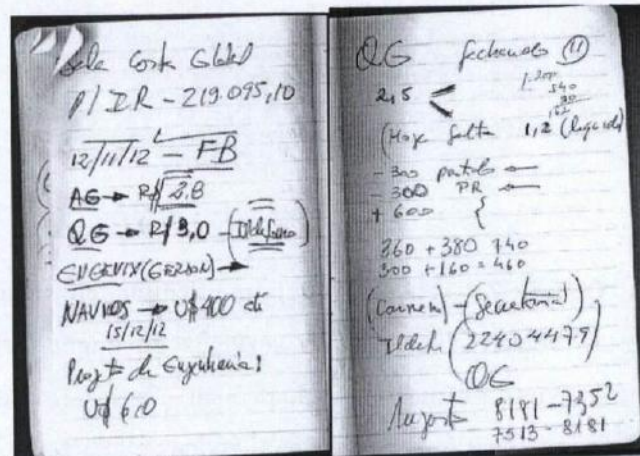 Costa Global
P/ IR - 219.095,10
12/11/12 - FB
AG → R$ 2.8
QG → R$ 3,0 - (Ildefonso)
ENGEVIX (GERSON) →
NAVIOS → U$ 400
15/12/12
de Engenharia:
U$ 6,0
QG fechando (11)
2,5 1.200
540
(Hoje falta 1,2 (líquido)
- 300 partido ←
- 300 PR ←
+ 600 {
360 + 380 740
300 + 160 = 460
(Carmem) - (Secretária)
22404479)
QG
Augusto 8181-7352
7513-8181